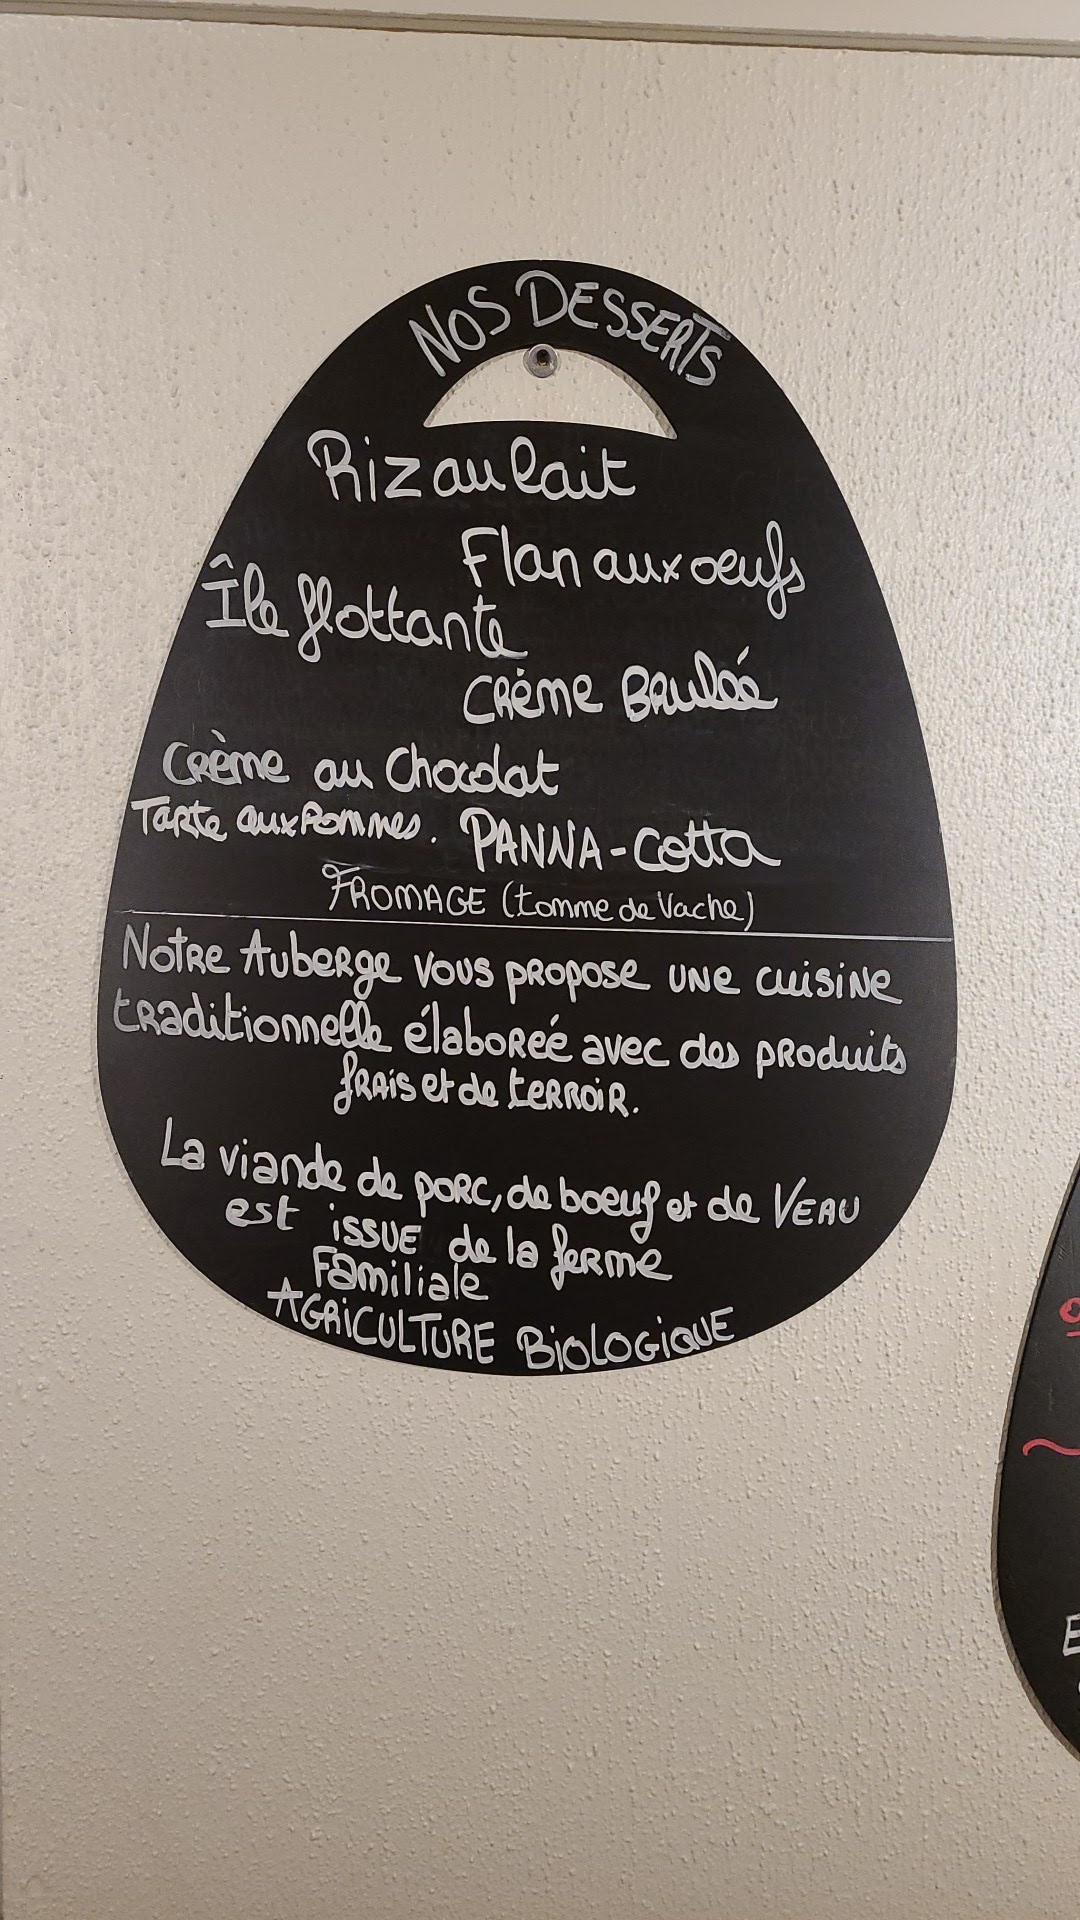 NOS DESSERTS
Riz au lait
Flan aux oeufs
Île flottante
Crème Brulée
Crème au Chocolat
Tarte aux Pommes. PANNA-Cotta
FROMAGE (tomme de Vache)
Notre Auberge vous propose une cuisine
traditionnelle élaboréé avec des produits
frais et de terroir.
La viande de porc, de boeuf et de VEAU
est issue de la ferme
Familiale
AGRICULTURE BiOLOGiQUE